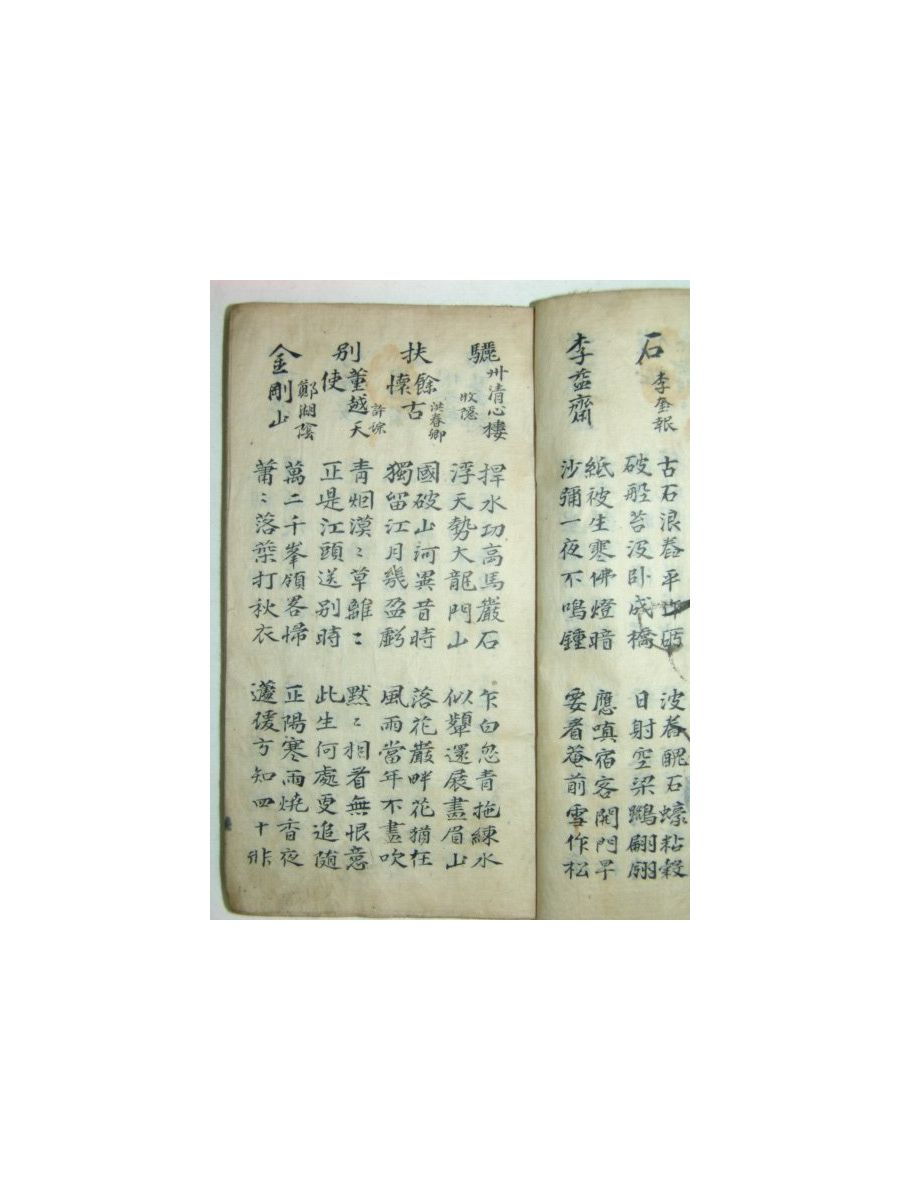 石
李奎報
古石浪舂平作砺
波舂醜石蠔粘殼
破船苔没卧成橋
日射空梁鷁翩翩
李益齋
紙被生寒佛燈暗
應嗔宿客開門早
沙彌一夜不鳴鍾
要看菴前雪作松
驪州清心樓
牧隱
捍水功高馬巖石
乍白忽青拖練水
浮天勢大龍門山
似顰還展畫眉山
扶餘懷古
洪春卿
國破山河異昔時
落花巖畔花猶在
獨留江月幾盈虧
風雨當年不盡吹
別董越天使
許琮
青烟漠〻草離〻
默〻相看無恨意
正是江頭送別時
此生何處更追随
金剛山
鄭湖陰
萬二千峯領畧㱕
正陽寒雨燒香夜
蕭〻落葉打秋衣
蘧瑗方知四十非